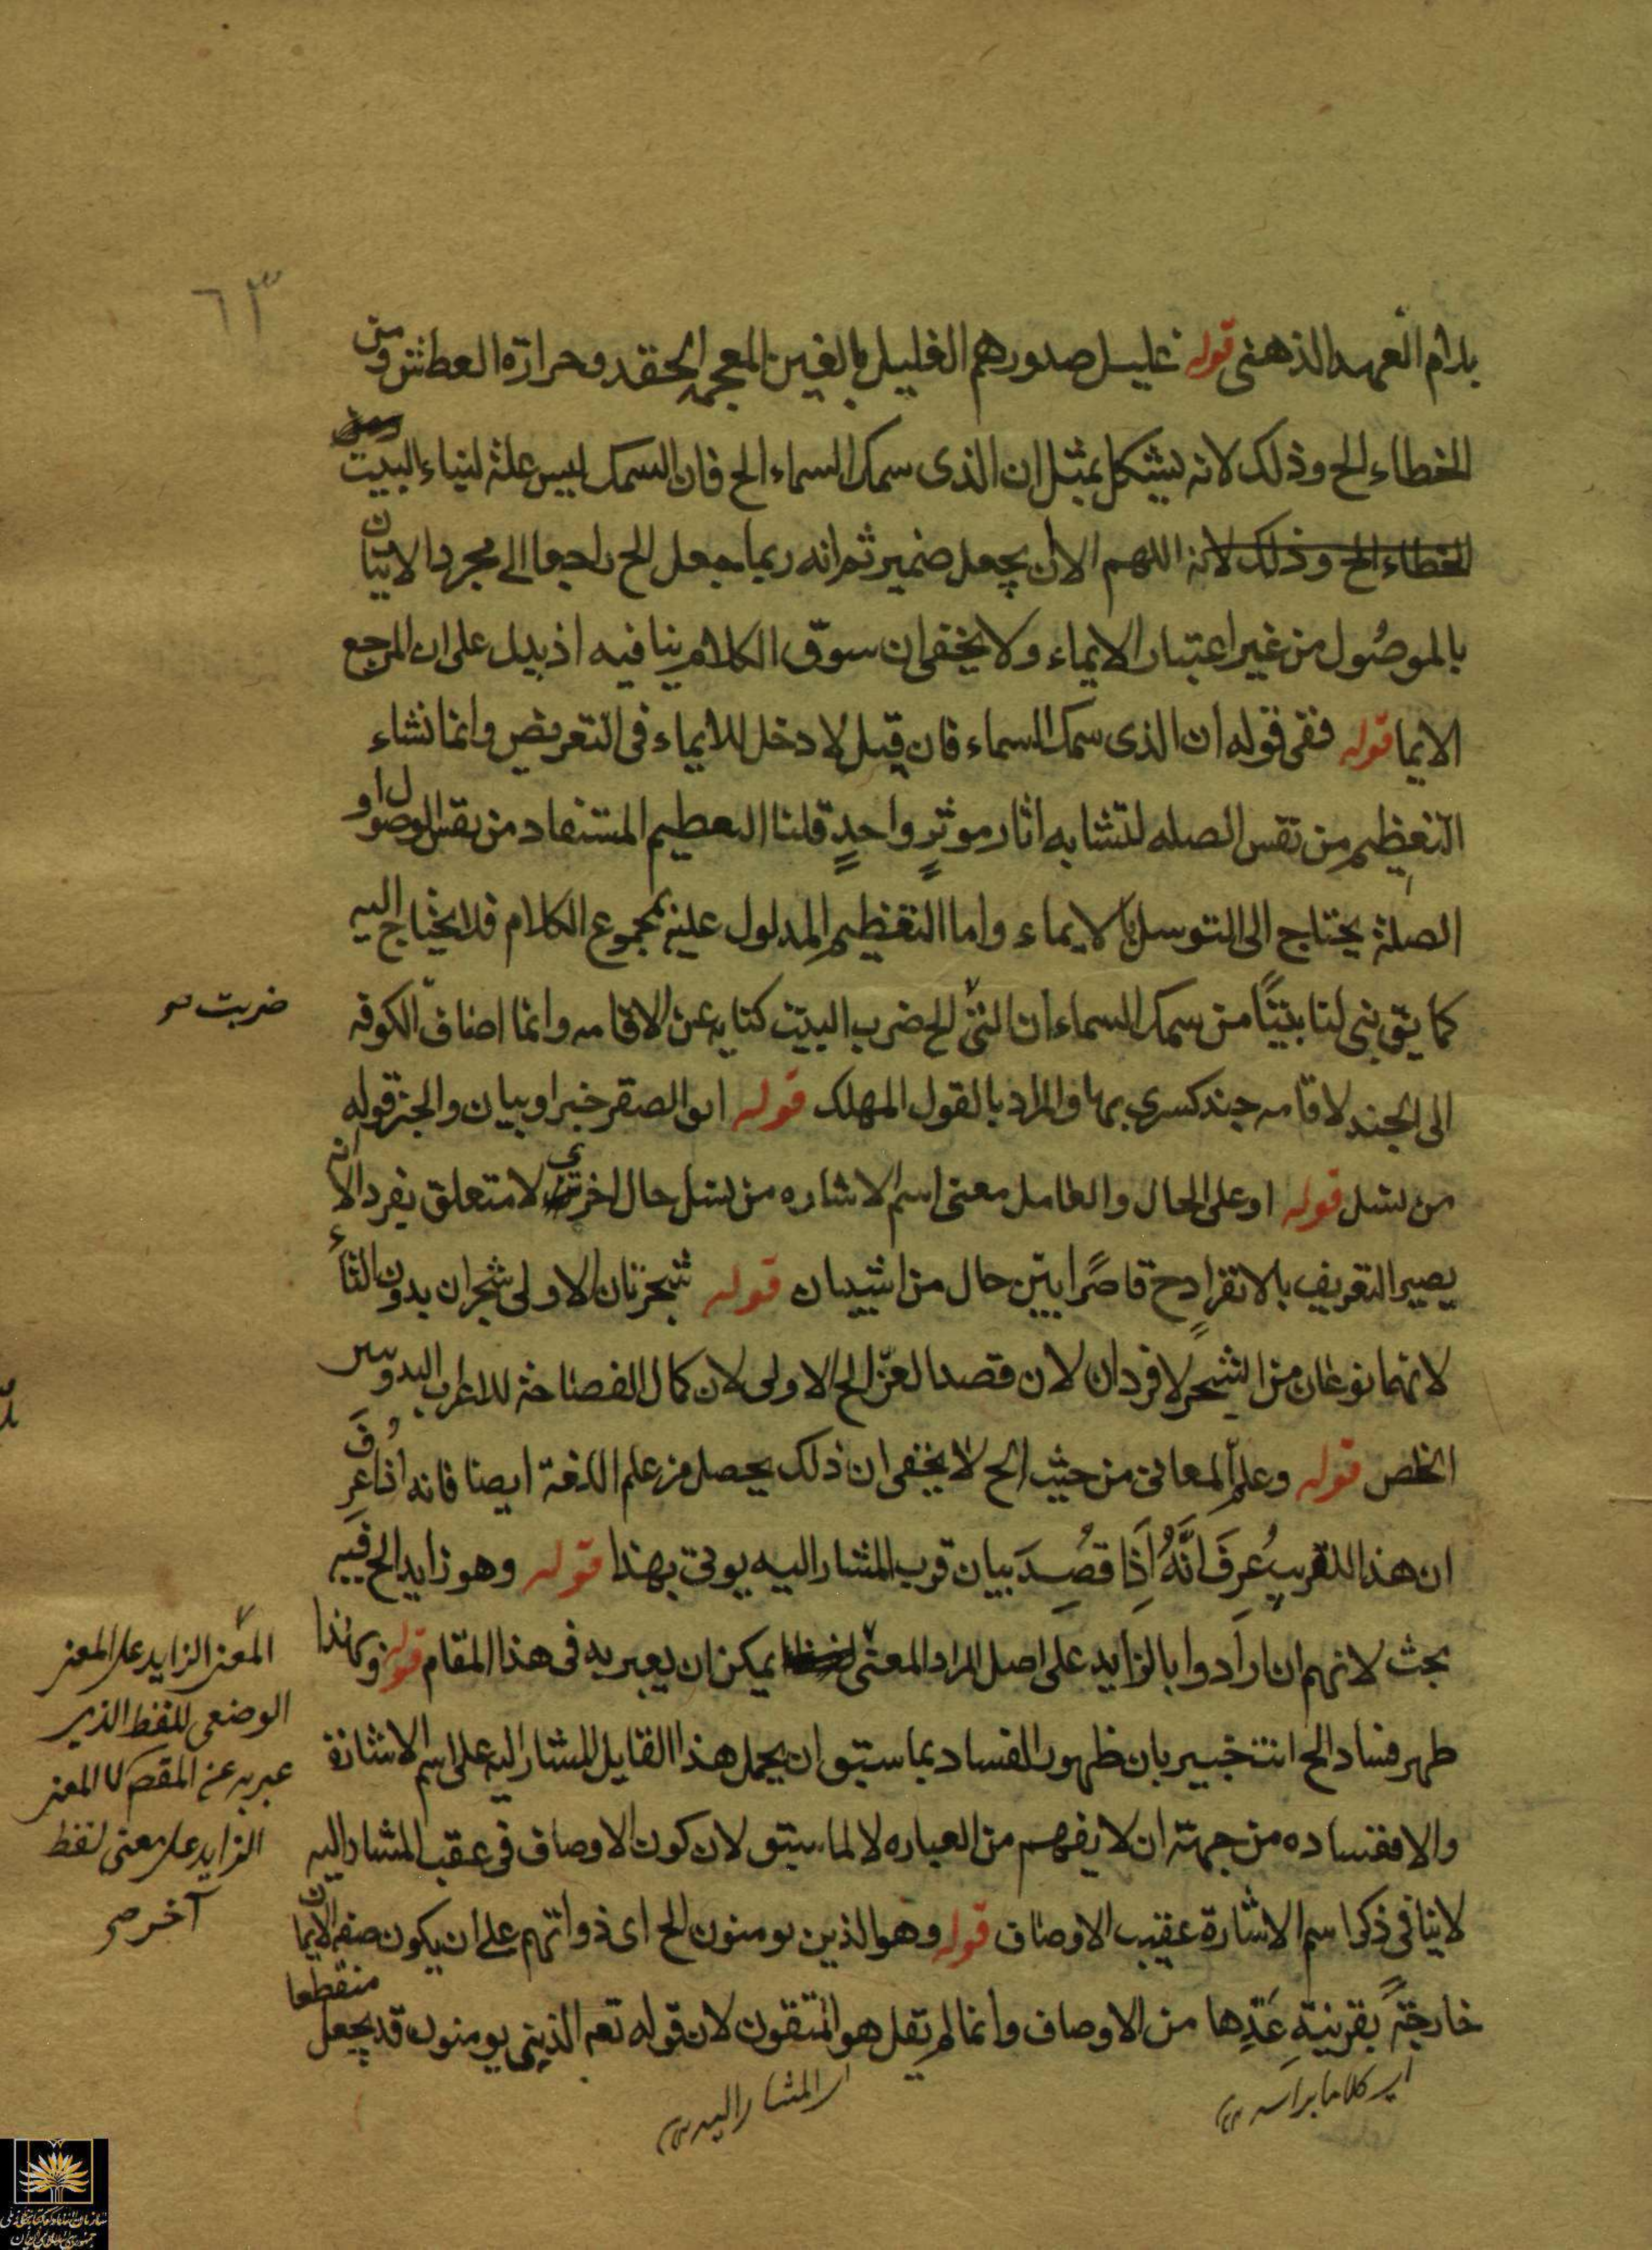 ٦٣
بلام العهد الذهنى قوله غليل صدورهم الغليل بالغين المعجمه الحقد وحرارة العطش ومن
الخطاء الخ وذلك لانه يشكل بمثل ان الذى سمك السماء الخ فان السمك ليس علة لبناء البيت
الخطاء الخ وذلك لانه اللهم الا ان يجعل ضمير ثم انه ربما جعل الخ راجعا الى مجرد الاتيان
بالموصول من غير اعتبار الايماء ولا يخفى ان سوق الكلام ينافيه اذ يدل على ان المرجع
الايما قوله ففى قوله ان الذى سمك السماء فان قيل لا دخل للايماء فى التعريض وانما نشاء
التعظيم من نفس الصله لتشابه اثار موثر واحد قلنا التعظيم المستفاد من نفس الموصول او
الصلة يحتاج الى التوسل بالايماء واما التعظيم المدلول عليه بمجموع الكلام فلا يحتاج اليه
كما يق بنى لنا بيتا من سمك السماء ان التى الخ ضرب البيت كنايه عن الاقامه وانما اضاف الكوفه
ضربت صح
الى الجند لاقامه جند كسرى بها والمراد بالقول المهلك قوله ابو الصقر خبر او بيان والخبر قوله
من نسل قوله او على الحال والعامل معنى اسم الاشاره من نسل حال اخرى لا متعلق بفرد الا انه
يصير التعريف بالانفراد ح قاصرا بين حال من شيبان قوله شجرتان الاولى شجران بدون التاء
لانهما نوعان من الشجر لا فردان لان قصد العز الخ الاولى لان كمال الفصاحة للاعراب البدو وسر
الخلص قوله وعلم المعانى من حيث الخ لا يخفى ان ذلك يحصل من علم اللغة ايضا فانه اذا عرف
ان هذا للقريب عرف انه اذا قصد بيان قرب المشار اليه يوتى بهذا قوله وهو زايد الخ فيه
بحث لانهم ان ارادوا بالزايد على اصل المراد المعنى يمكن ان يعبر به فى هذا المقام قوله وبهذا
المعنى الزايد على المعنى
الوضعى للفظ الذى
عبر به عن المقصم لا المعنى
الزايد على معنى لفظ
آخر صح
ظهر فساد الخ انت خبير بان ظهور الفساد بما سبق ان يحمل هذا القايل المشار اليه على اسم الاشارة
والا ففساده من جهة ان لا يفهم من العباره لا لما سبق لان كون الاوصاف فى عقب المشار اليه
لا ينافى ذكر اسم الاشارة عقيب الاوصاف قوله وهو الذين يومنون الخ اى ذواتهم على ان يكون صفه الايمان
خارجة بقرينة عدها من الاوصاف وانما لم يقل هو المتقون لان قوله تعم الذين يومنون قد يجعل منقطعا
اى كلاما براسه
اى المشار اليه